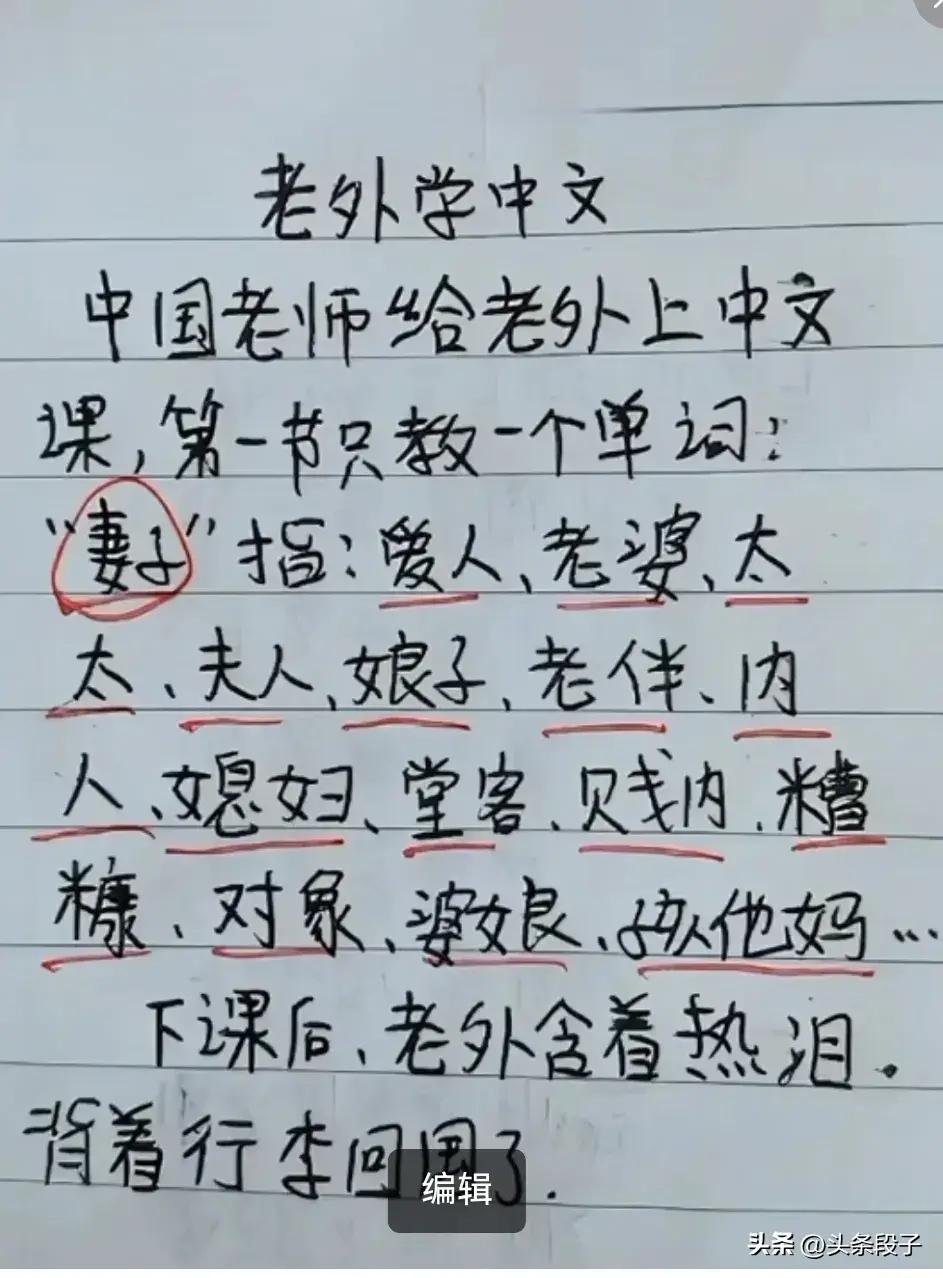 老外学中文
中国老师给老外上中文
课,第一节只教一个单词:
"妻子"指:爱人、老婆、太
太、夫人、娘子、老伴、内
人、媳妇、堂客、贱内、糟
糠、对象、婆娘、孩他妈...
下课后、老外含着热泪.
背着行李回国了.
编辑
头条 @头条段子